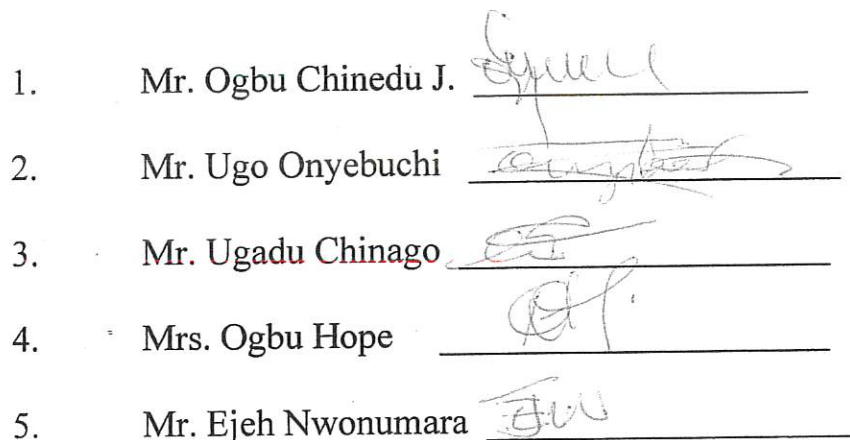 1. Mr. Ogbu Chinedu J.
2. Mr. Ugo Onyebuchi
3. Mr. Ugadu Chinago
4. Mrs. Ogbu Hope
5. Mr. Ejeh Nwonumara